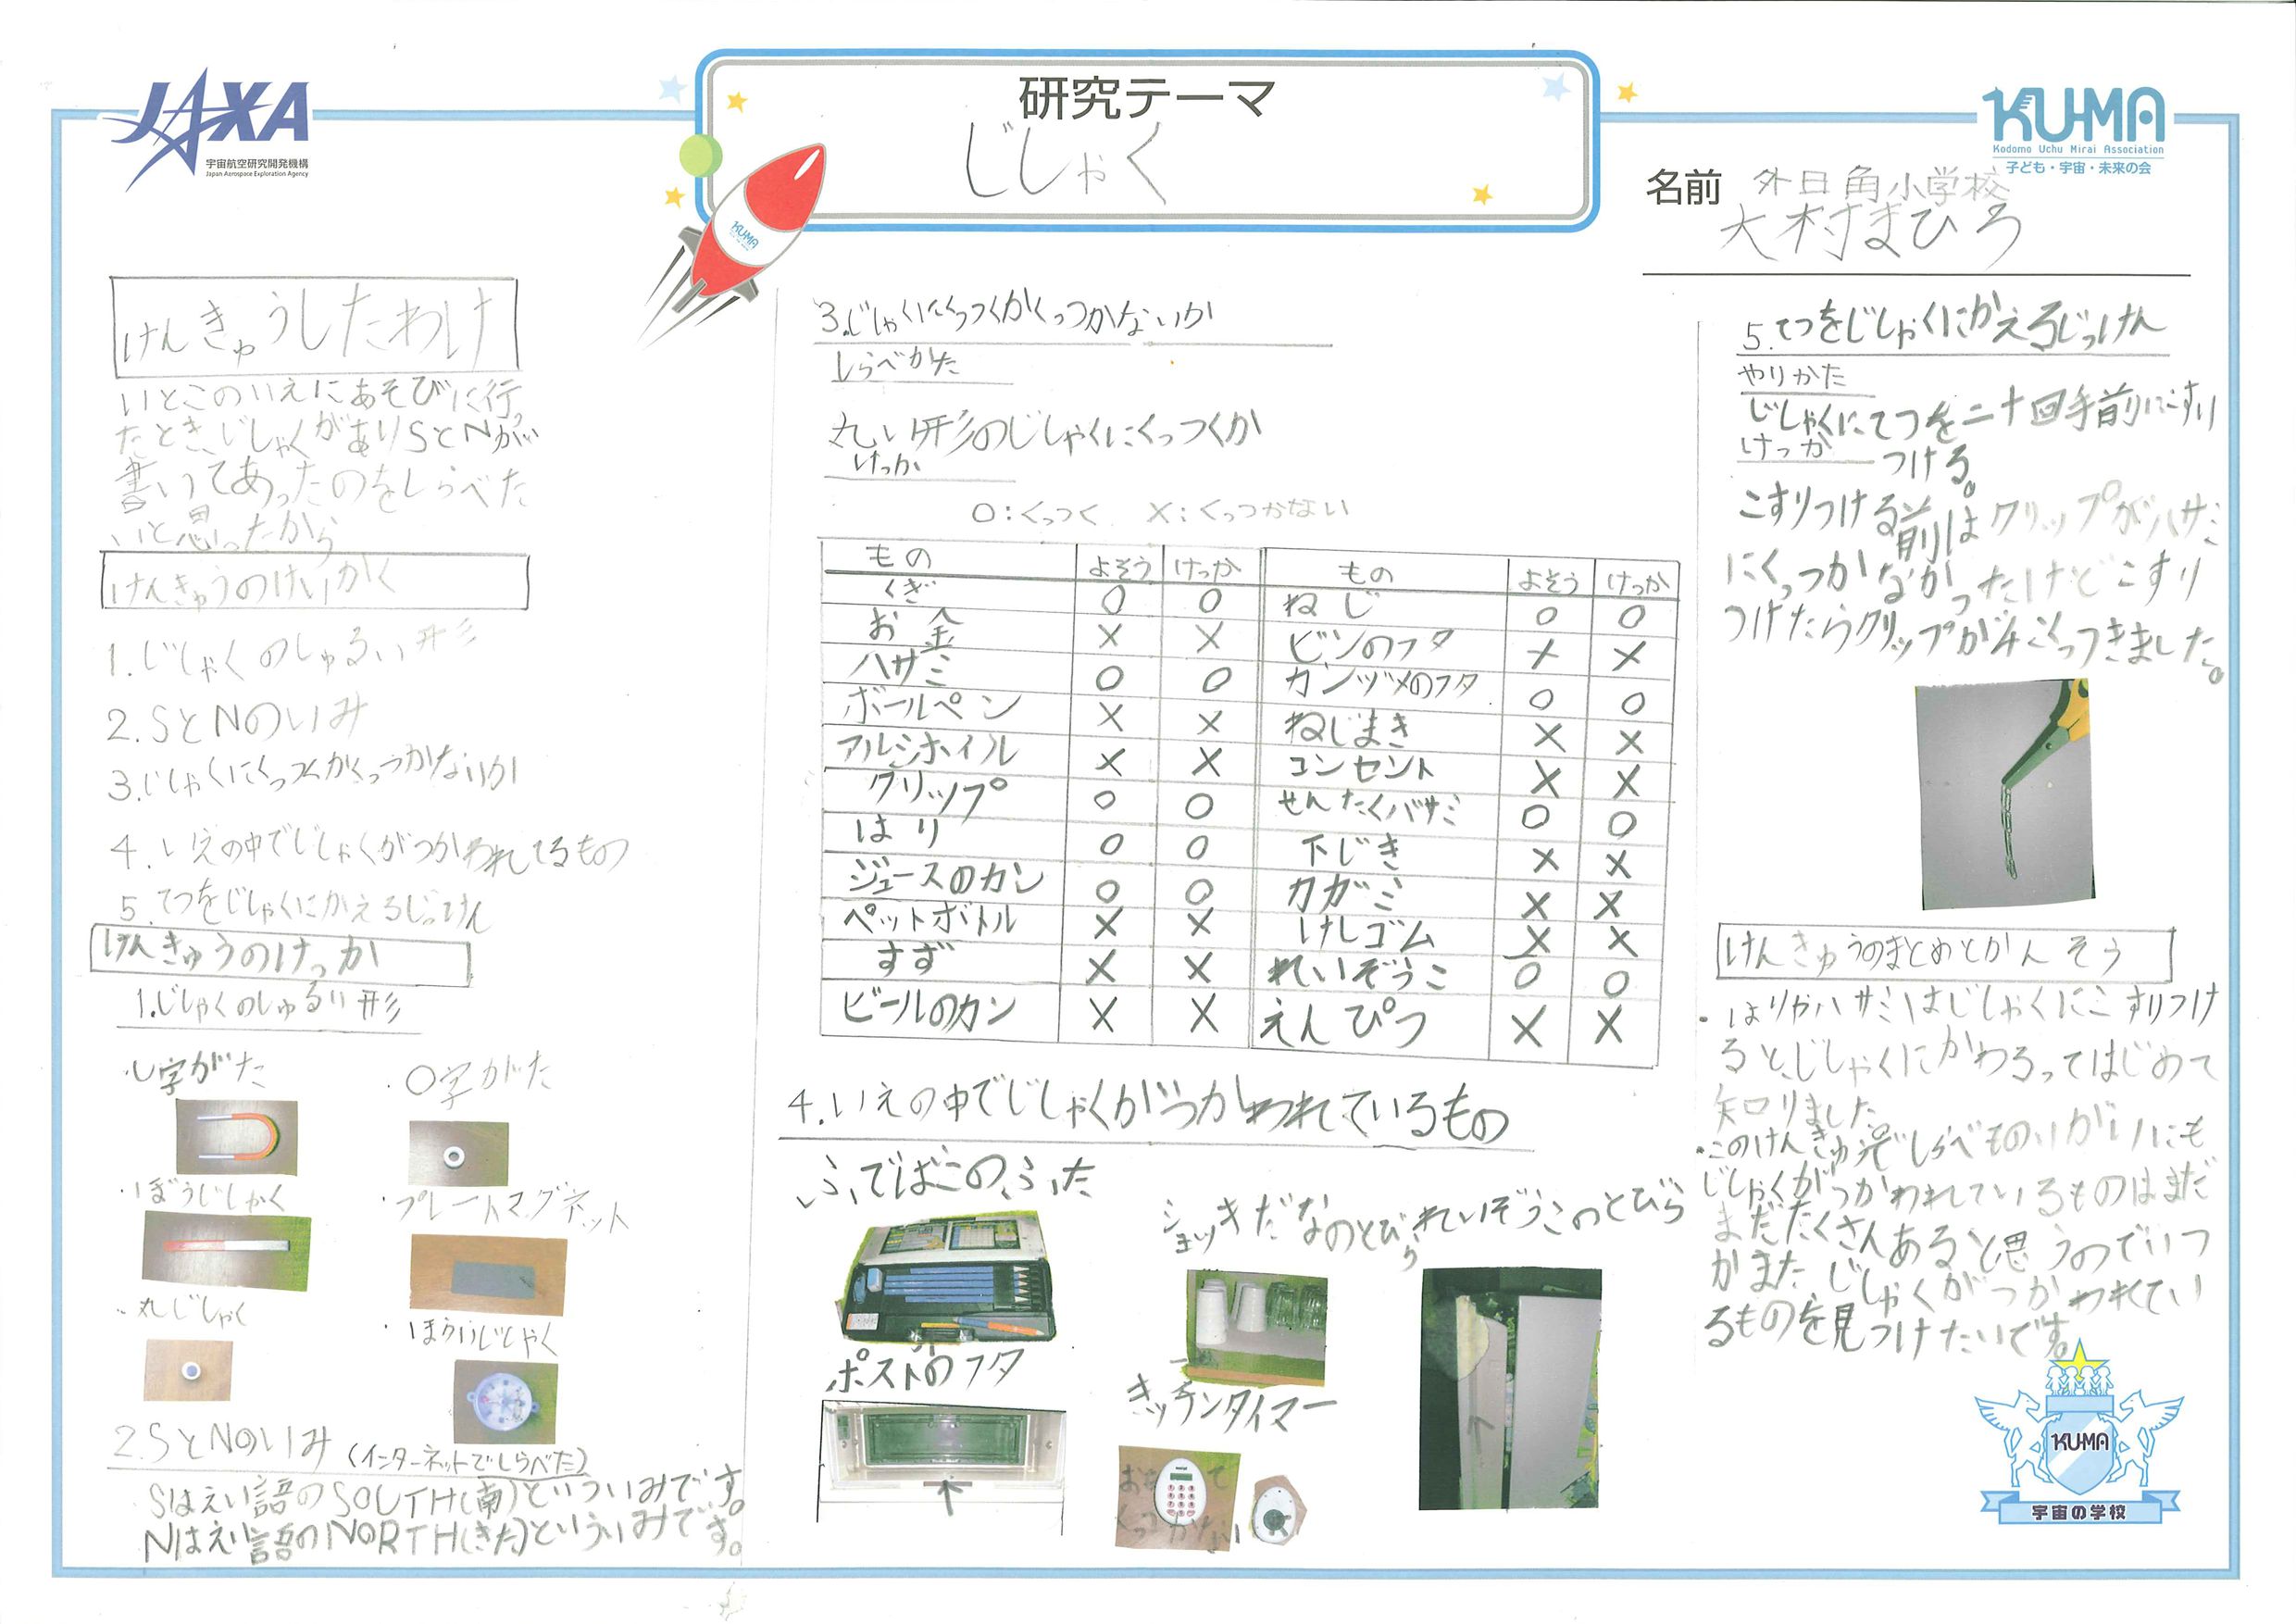 JAXA
宇宙航空研究開発機構
Japan Aerospace Exploration Agency
研究テーマ
じしゃく
KUMA
KUMA
Kodomo Uchu Mirai Association
子ども・宇宙・未来の会
名前 外日角小学校
大村まひろ
けんきゅうしたわけ
いとこのいえにあそびに行っ
たとき、じしゃくがありSとNが
書いてあったのをしらべた
いと思ったから
けんきゅうのけいかく
1.じしゃくのしゅるい形
2.SとNのいみ
3.じしゃくにくっつくかくっつかないか
4.いえの中でじしゃくがつかわれてるもの
5.てつをじしゃくにかえるじっけん
けんきゅうのけっか
1.じしゃくのしゅるい形
・U字がた
・〇字がた
・ぼうじしゃく
・プレートマグネット
・丸じしゃく
・ほういじしゃく
2.SとNのいみ(インターネットでしらべた)
Sはえい語のSOUTH(南)といういみです。
Nはえい語のNORTH(きた)といういみです。
3.じしゃくにくっつくかくっつかないか
しらべかた
丸い形のじしゃくにくっつくか
けっか
○:くっつく ×:くっつかない
もの よそう けっか もの よそう けっか
くぎ ○ ○ ねじ ○ ○
お金 × × ビンのフタ × ×
ハサミ ○ ○ カンヅメのフタ ○ ○
ボールペン × × ねじまき × ×
アルミホイル × × コンセント × ×
クリップ ○ ○ せんたくバサミ ○ ○
はり ○ ○ 下じき × ×
ジュースのカン ○ ○ カガミ × ×
ペットボトル × × けしゴム × ×
すず × × れいぞうこ ○ ○
ビールのカン × × えんぴつ × ×
4.いえの中でじしゃくがつかわれているもの
ふでばこのふた
ショッキだなのとびら
れいぞうこのとびら
ポストのフタ
きッチンタイマー
5.てつをじしゃくにかえるじっけん
やりかた
じしゃくにてつを二十回手前にこすり
つける。
けっか
こすりつける前はクリップがハサミ
にくっつかなかったけどこすり
つけたらクリップが4こくっつきました。
けんきゅうのまとめとかんそう
・はりやハサミはじしゃくにこすりつけ
ると、じしゃくにかわるってはじめて
知りました
・このけんきゅうでしらべものいがいにも
じしゃくがつかわれているものはまだ
まだたくさんあると思うのでいつ
かまた、じしゃくがつかわれてい
るものを見つけたいです。
KUMA
宇宙の学校